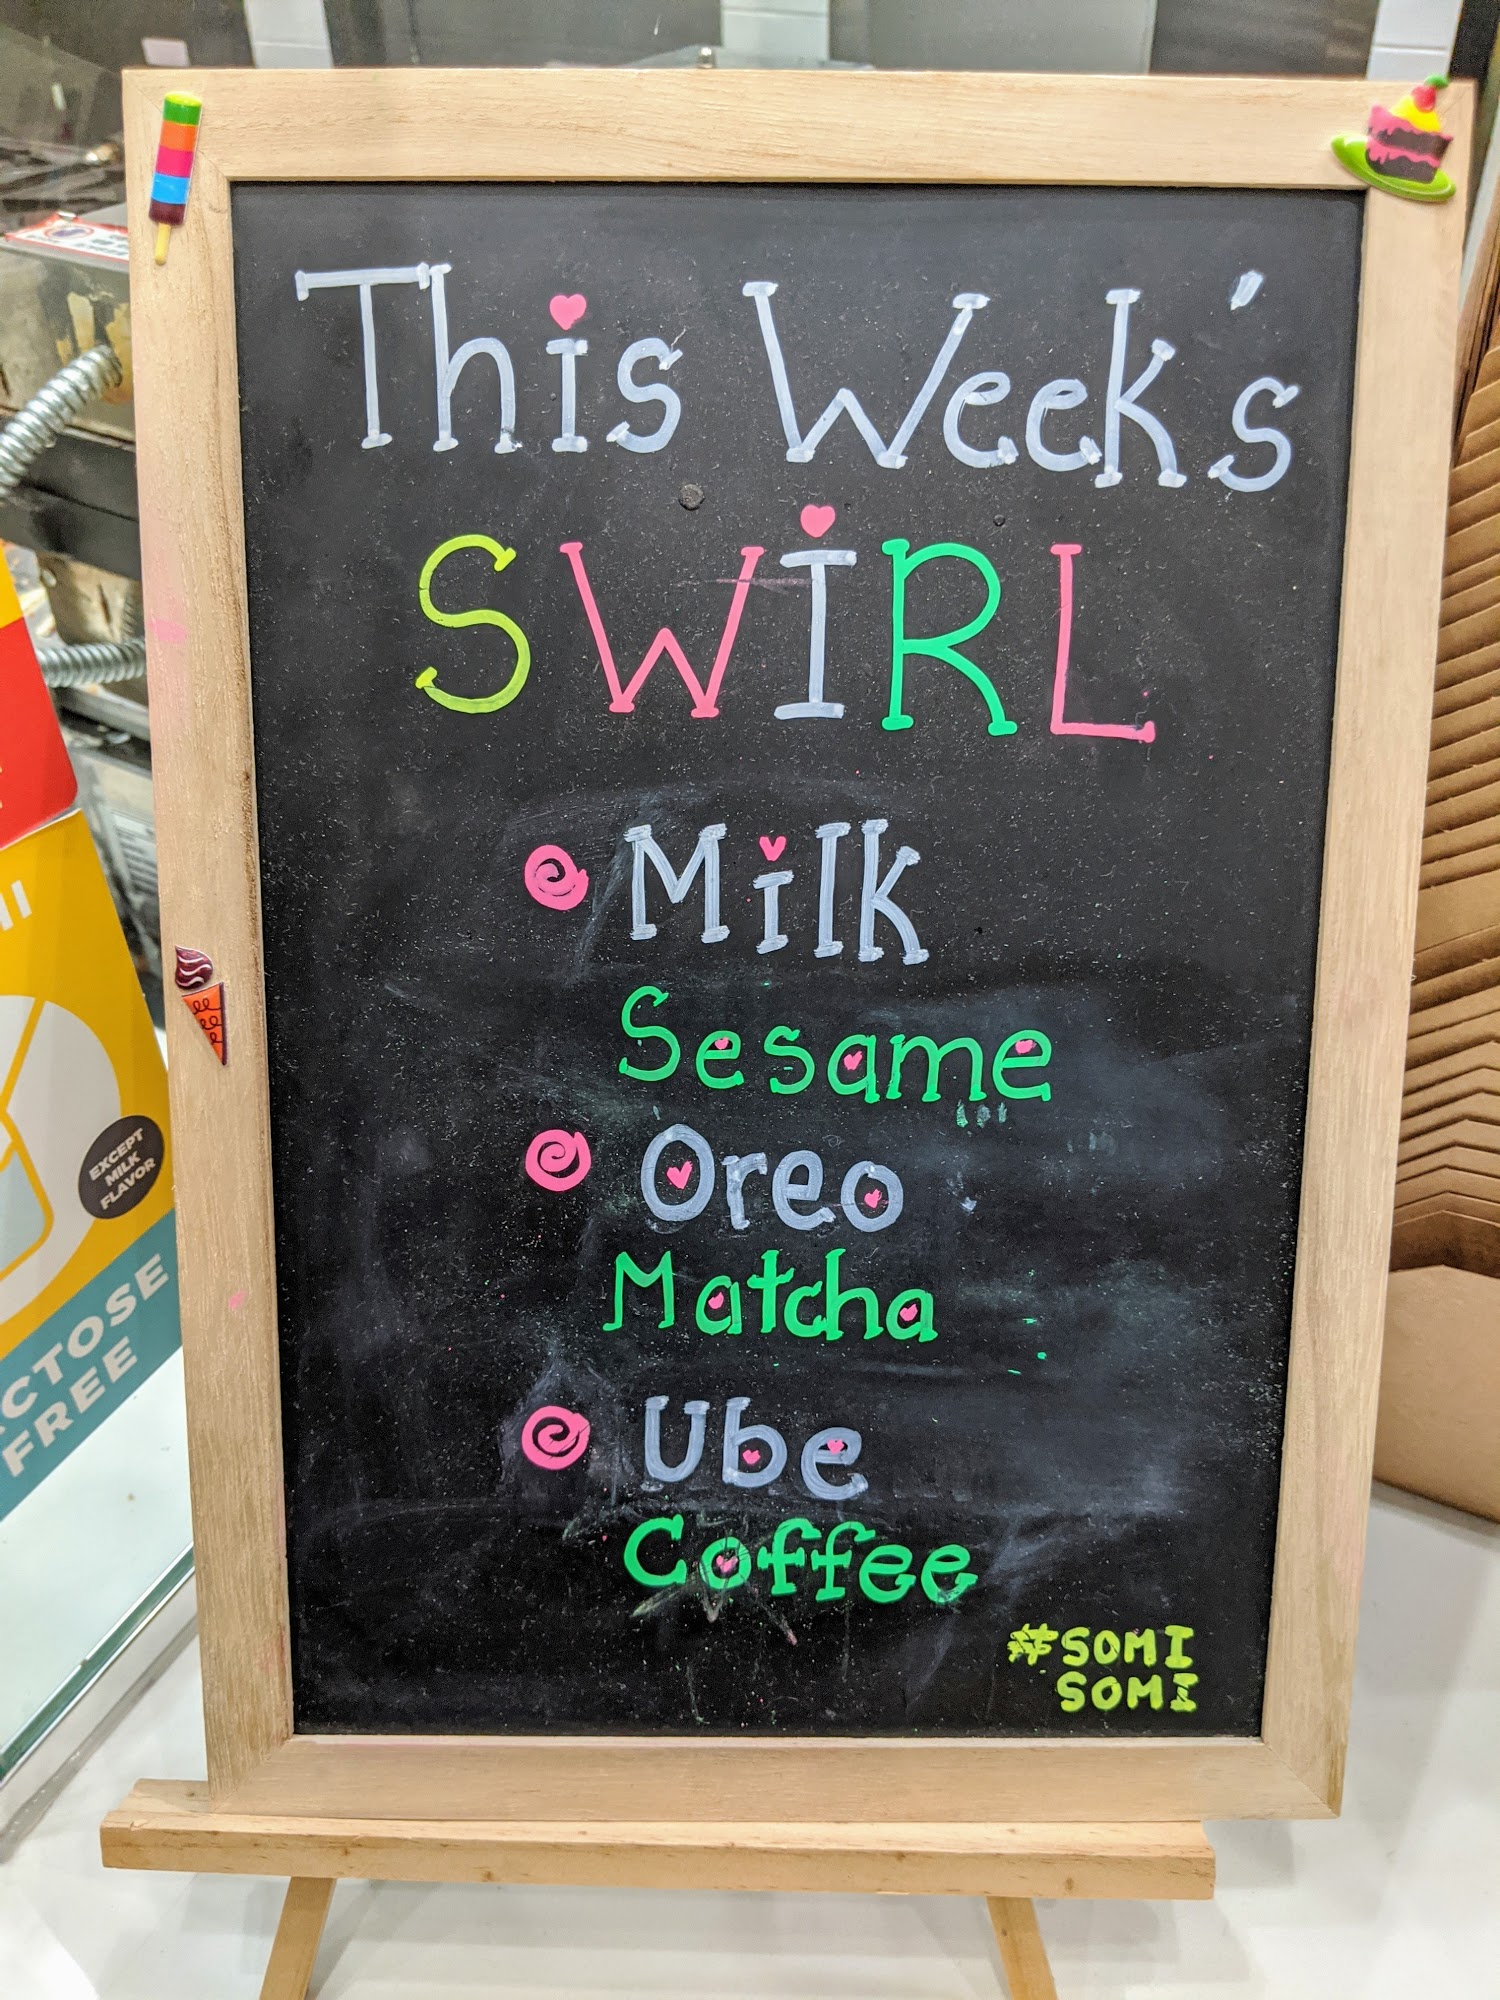 This Week's
SWiRL
Milk
Sesame
Oreo
Matcha
Ube
Coffee
#SOMI
SOMI
EXCEPT
MILK
FLAVOR
FREE